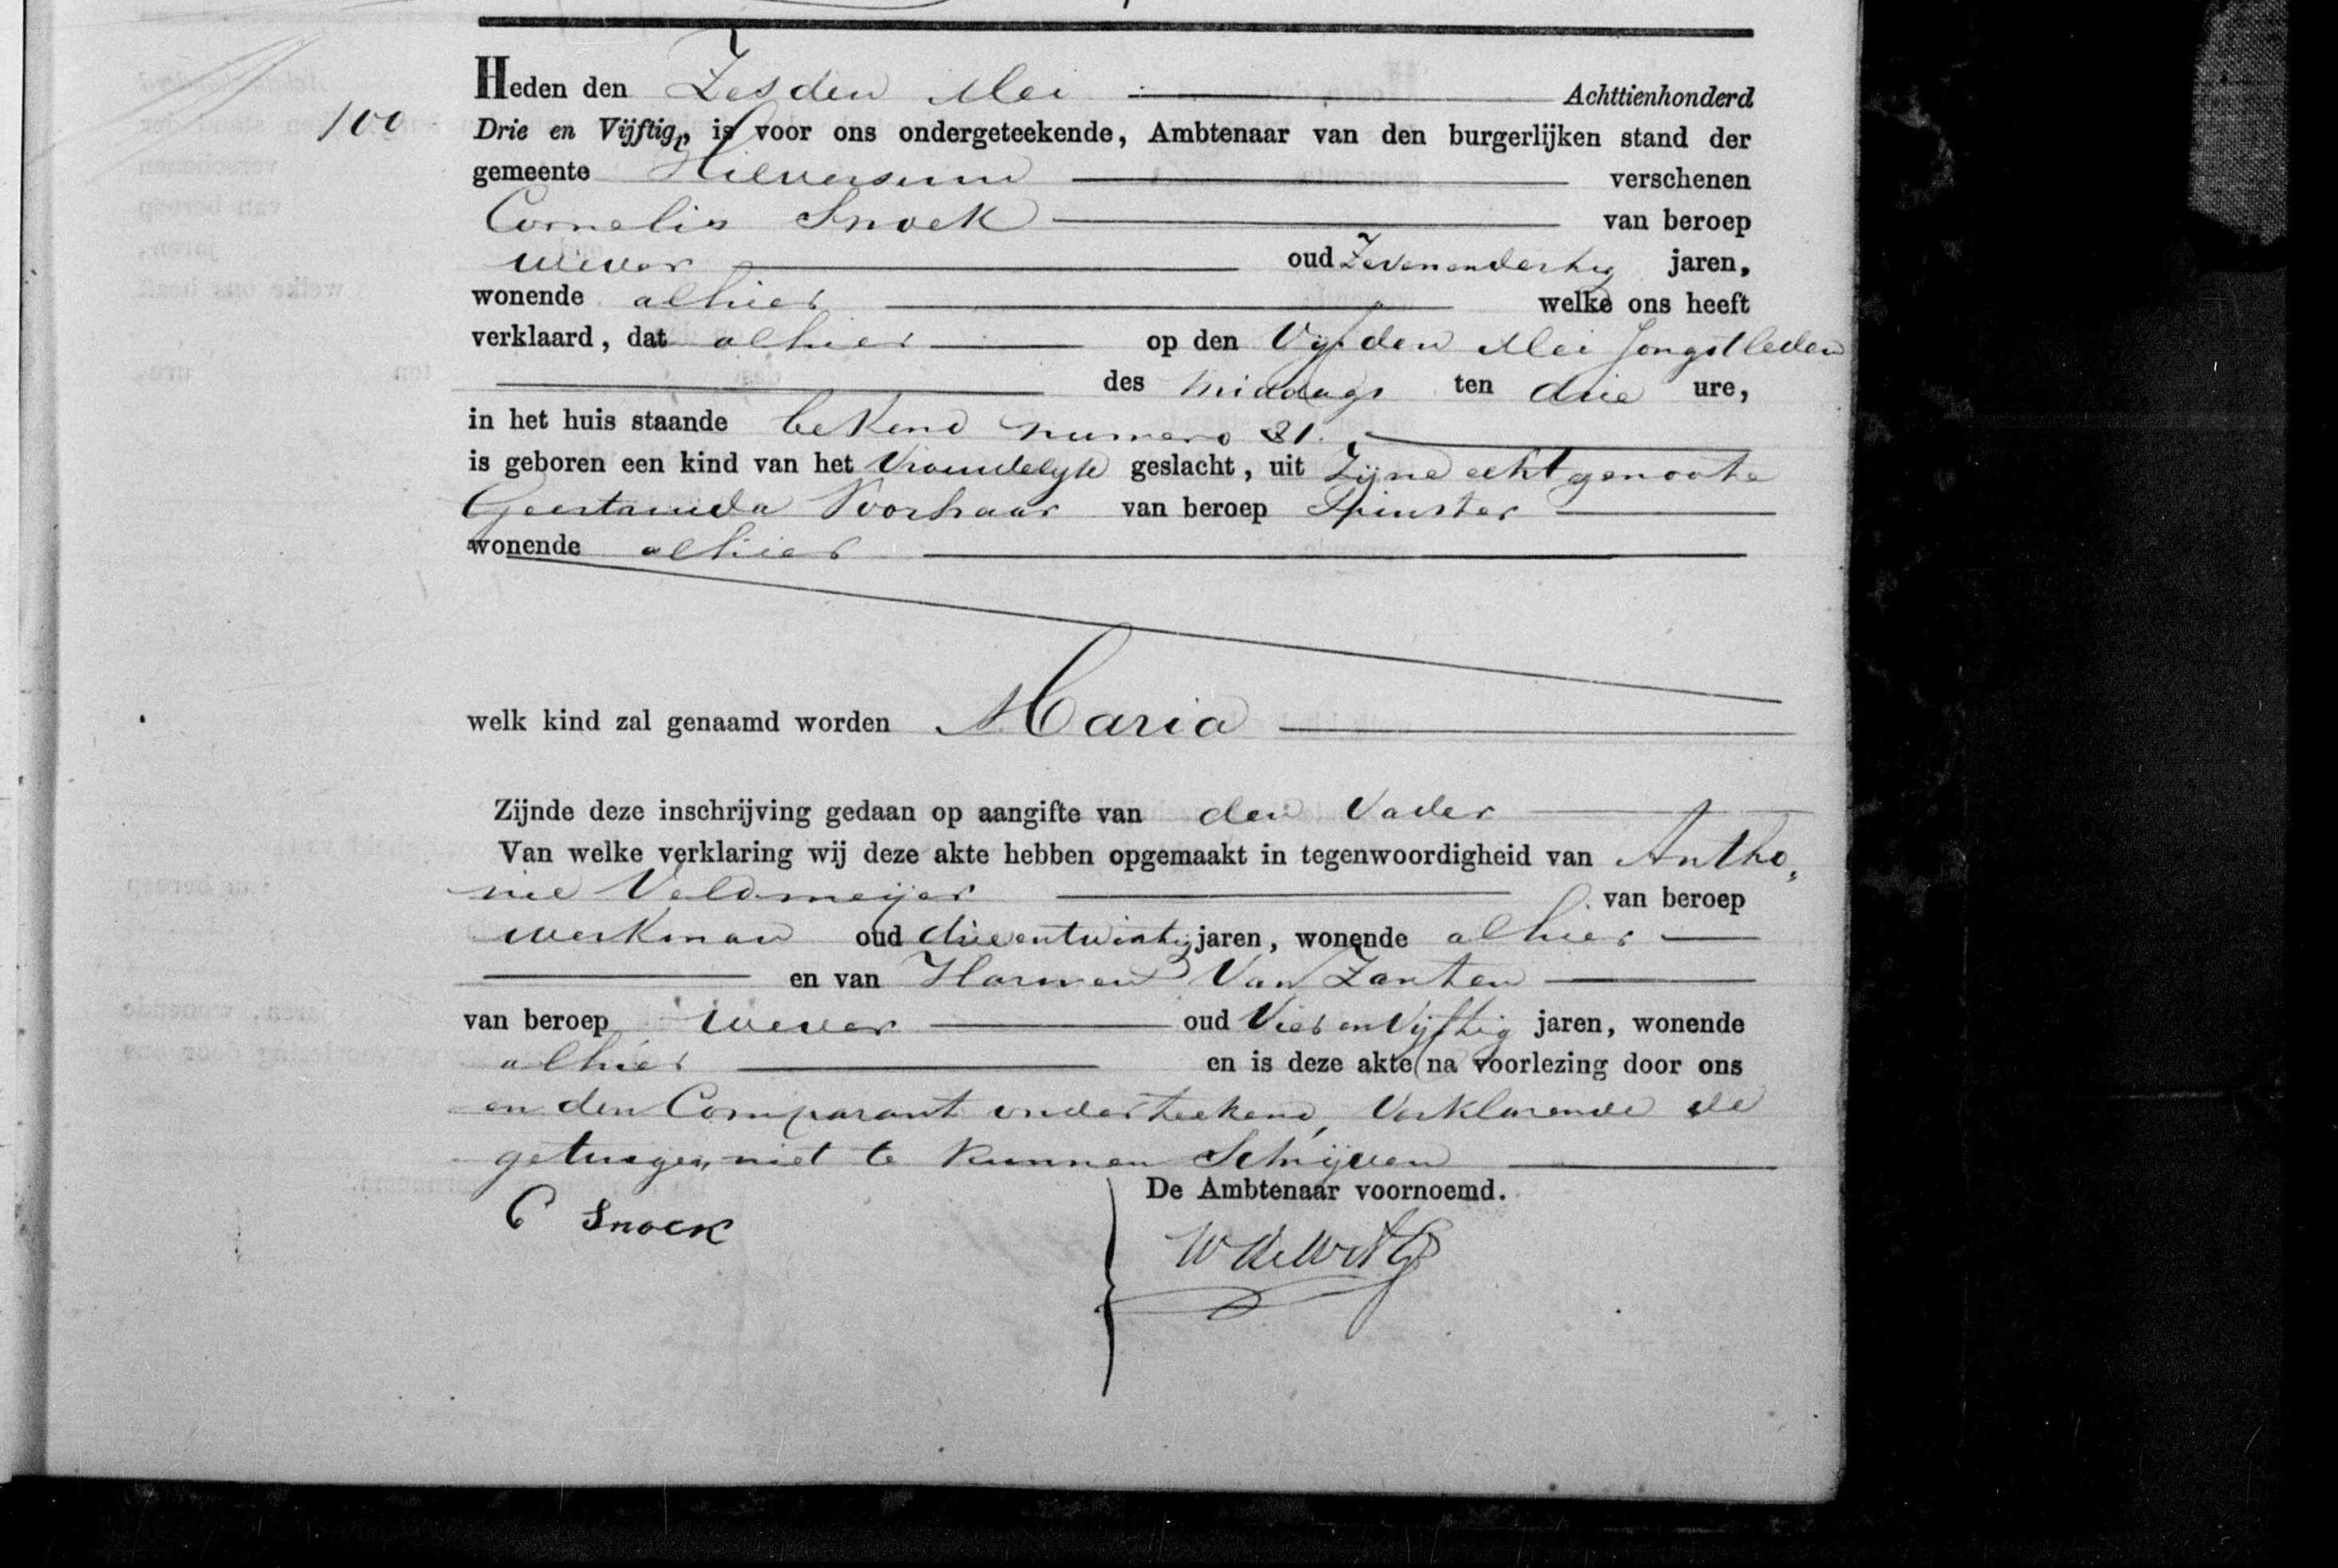 100
Heden den Zesden Mei Achttienhonderd
Drie en Vijftig, is voor ons ondergeteekende, Ambtenaar van den burgerlijken stand der
gemeente Hilversum verschenen
Cornelis Snoek van beroep
wever oud Zevenendertig jaren,
wonende alhier welke ons heeft
verklaard, dat alhier op den Vyfden Mei Jongstleden
des middags ten drie ure,
in het huis staande bekend numero 81.
is geboren een kind van het Vrouwelyk geslacht, uit Zijne echtgenoote
Geertruida Voorhaar van beroep Spinster
wonende alhier
welk kind zal genaamd worden Maria
Zijnde deze inschrijving gedaan op aangifte van den Vader
Van welke verklaring wij deze akte hebben opgemaakt in tegenwoordigheid van Antho„
nie Veldmeijer van beroep
werkman oud drieentwintig jaren, wonende alhier
en van Harmen Van Zanten
van beroep wever oud Vier en Vijftig jaren, wonende
alhier en is deze akte na voorlezing door ons
en den Comparant onderteekend, Verklarende de
getuigen niet te kunnen Schrijven
De Ambtenaar voornoemd.
C Snoek